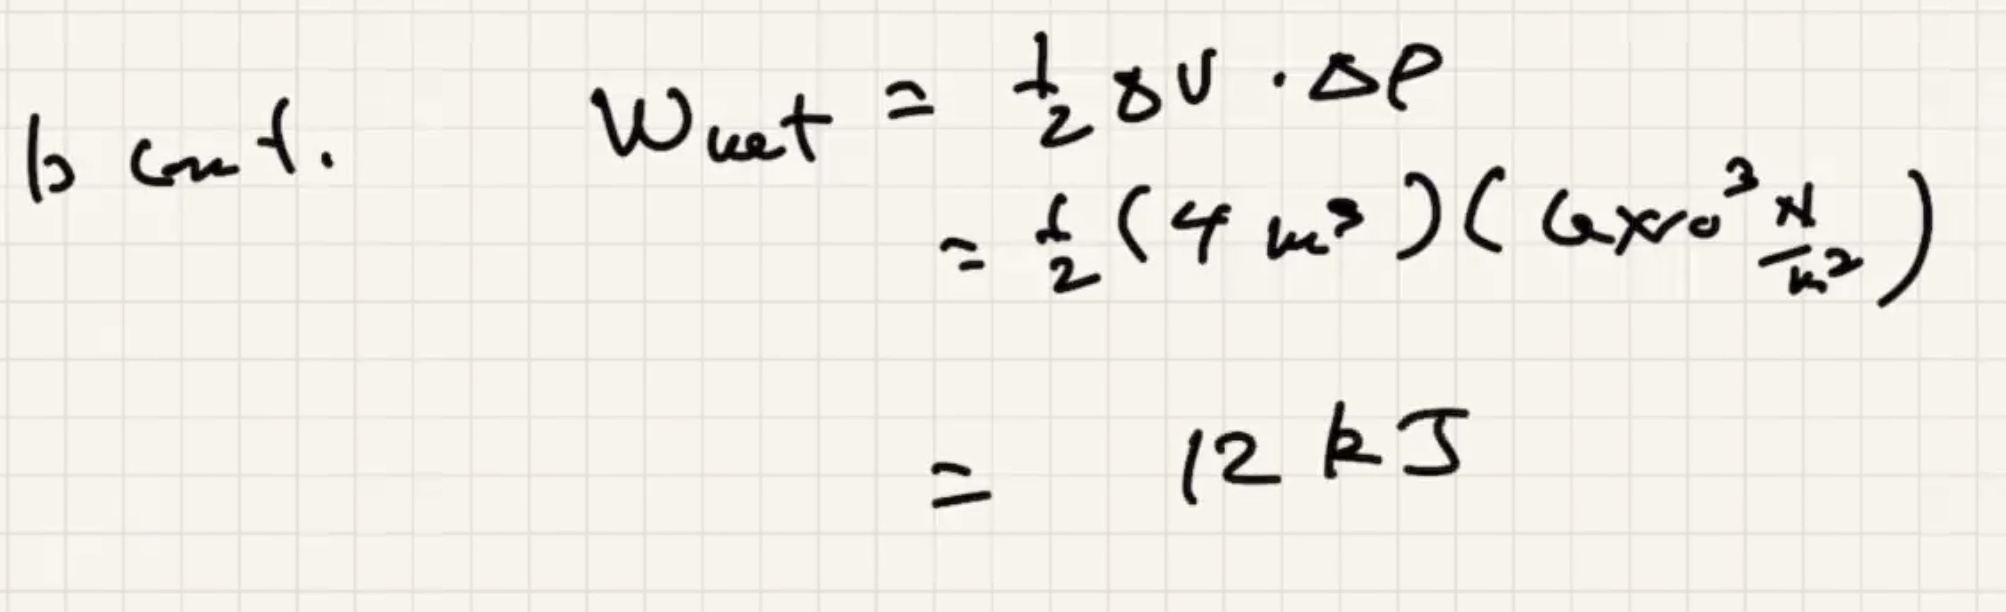 b cont. W net = 1/2 ΔV · ΔP
= 1/2 (4 m³)(6x10³ N/m²)
= 12 kJ